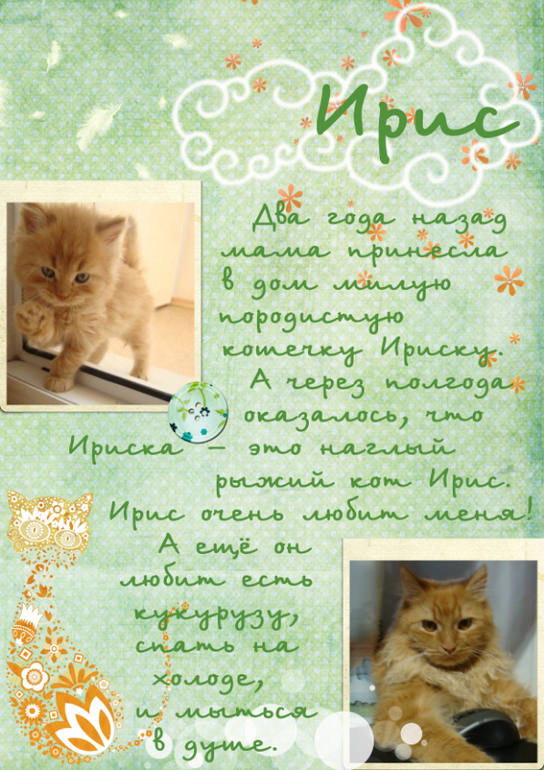 Ирис
Два года назад
мама принесла
в дом милую
породистую
кошечку Ириску.
А через полгода
оказалось, что
Ириска – это наглый
рыжий кот Ирис.
Ирис очень любит меня!
А ещё он
любит есть
кукурузу,
спать на
холоде,
и мыться
в душе.